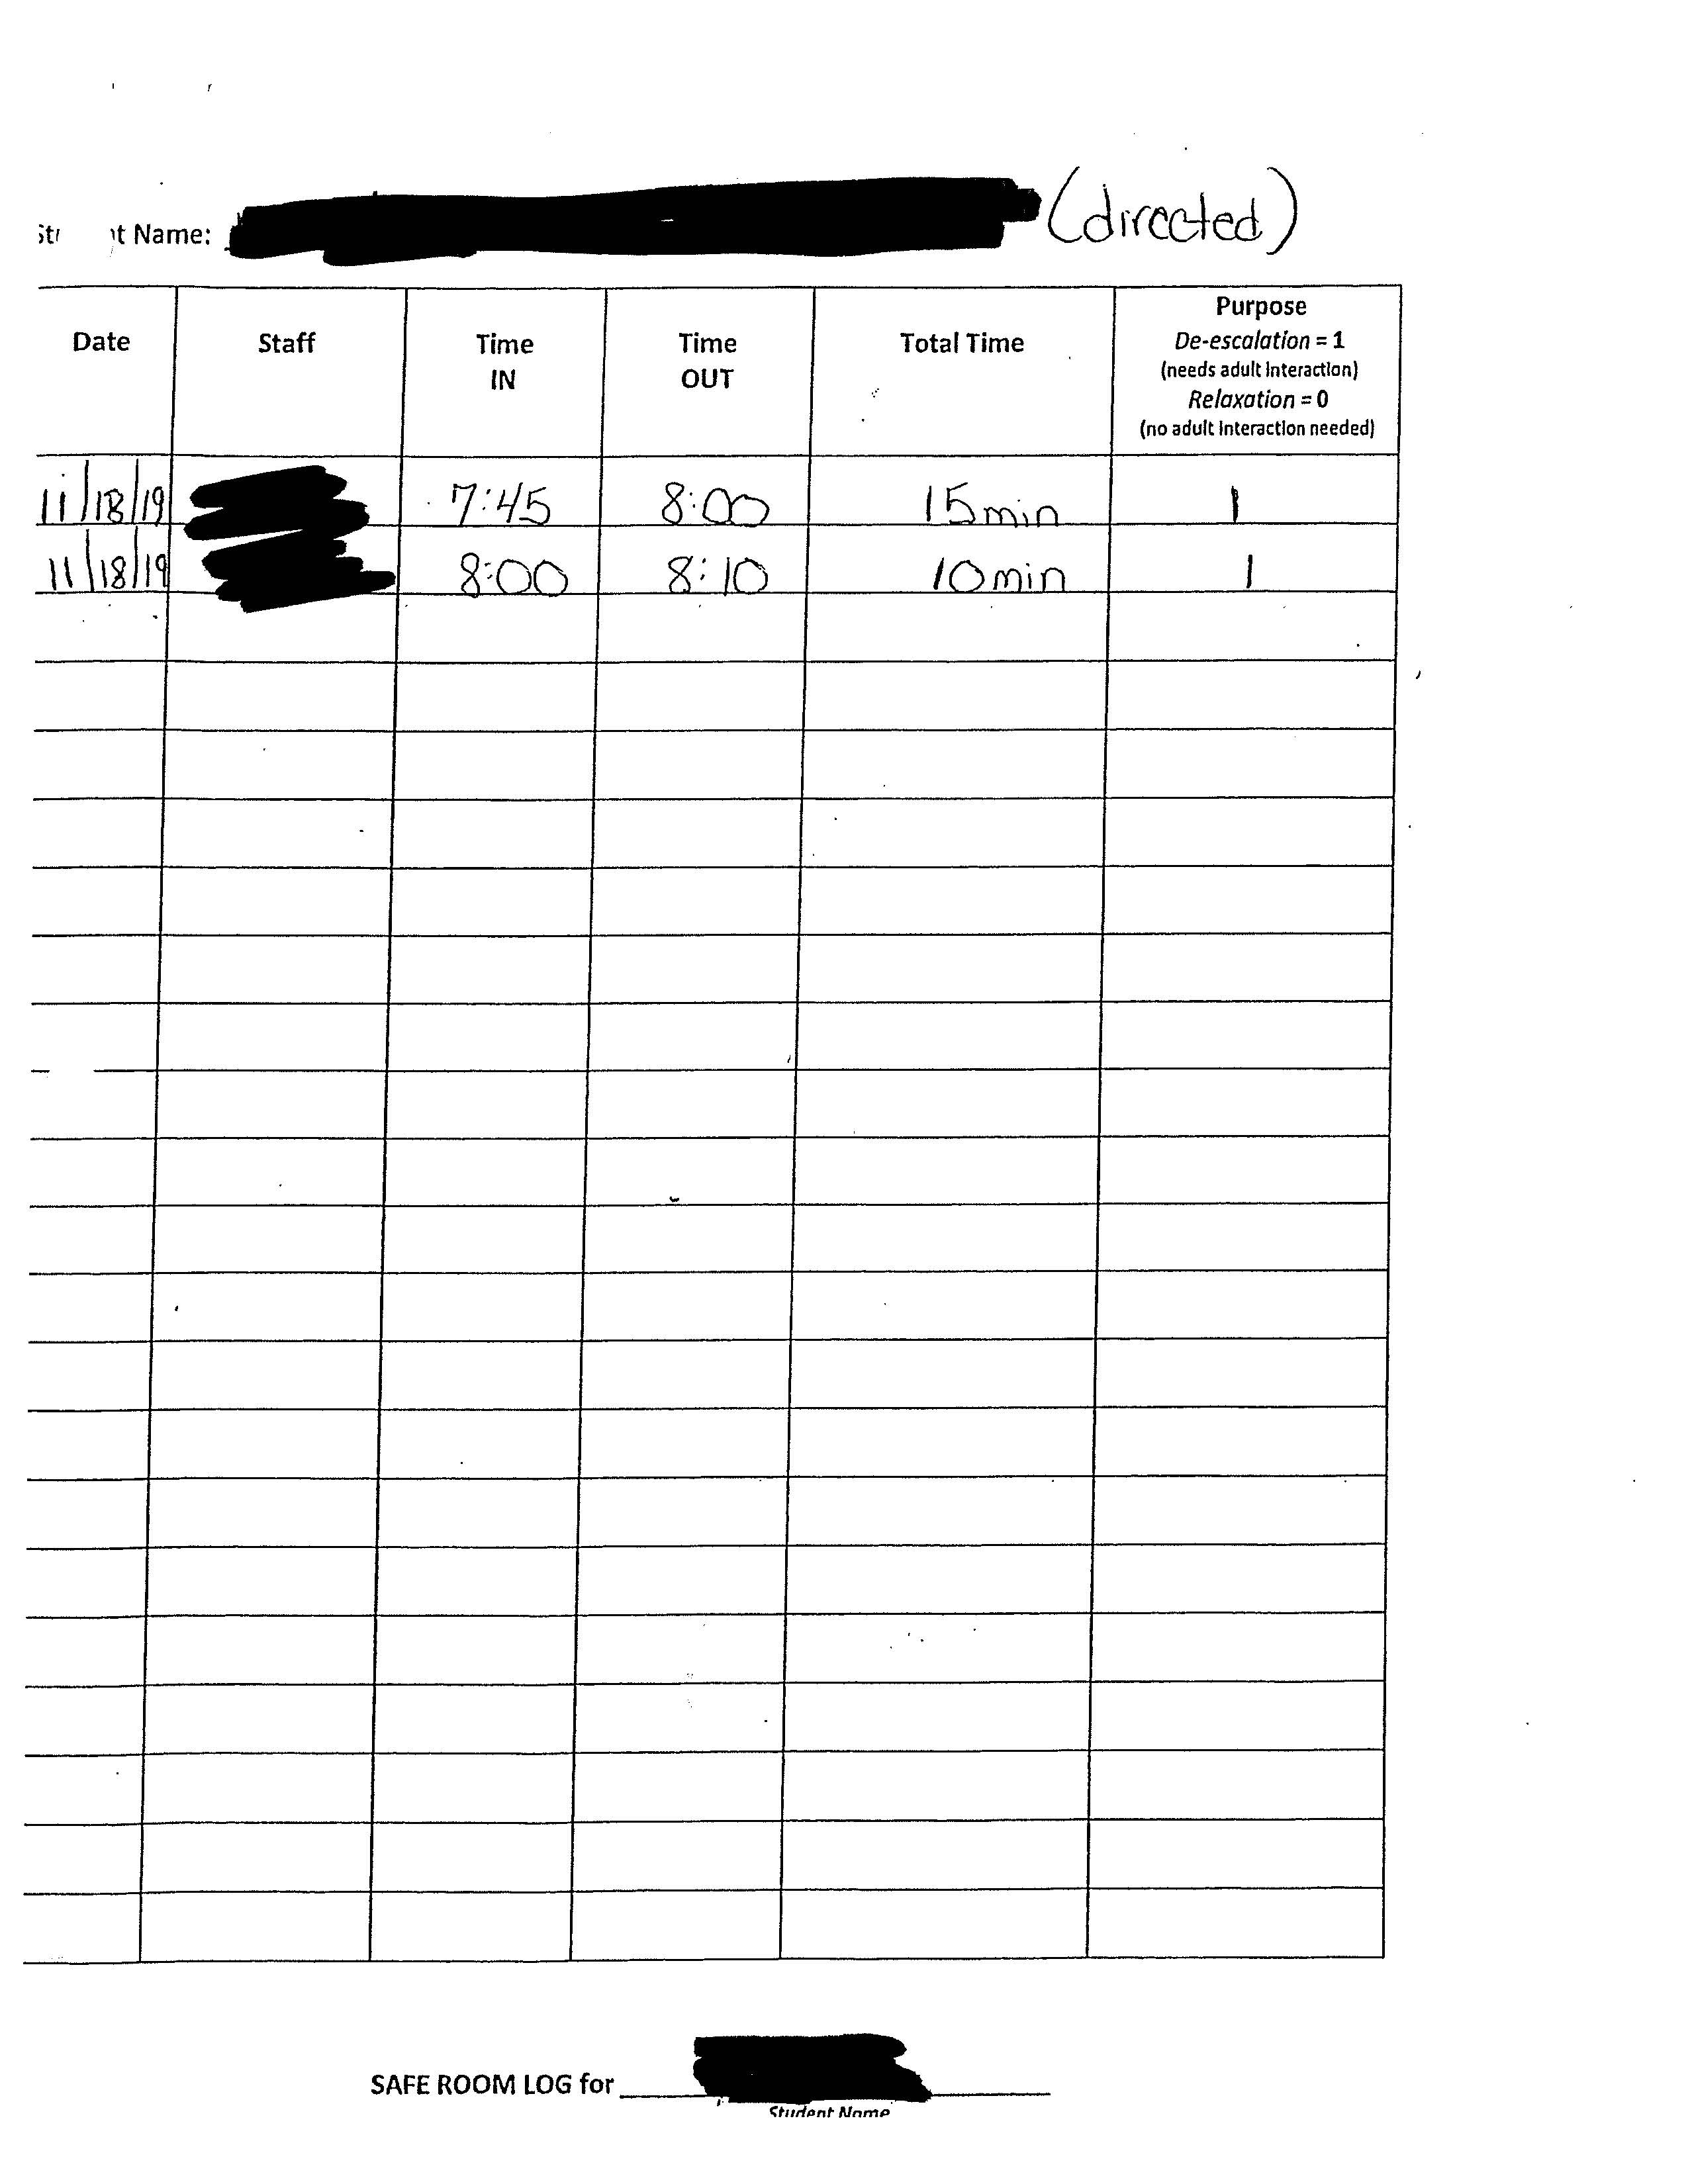 Name: (directed)
Date Staff Time IN Time OUT Total Time Purpose
De-escalation = 1
(needs adult interaction)
Relaxation = 0
(no adult interaction needed)
11/18/19 7:45 8:00 15 min 1
11/18/19 8:00 8:10 10 min 1
SAFE ROOM LOG for
Student Name